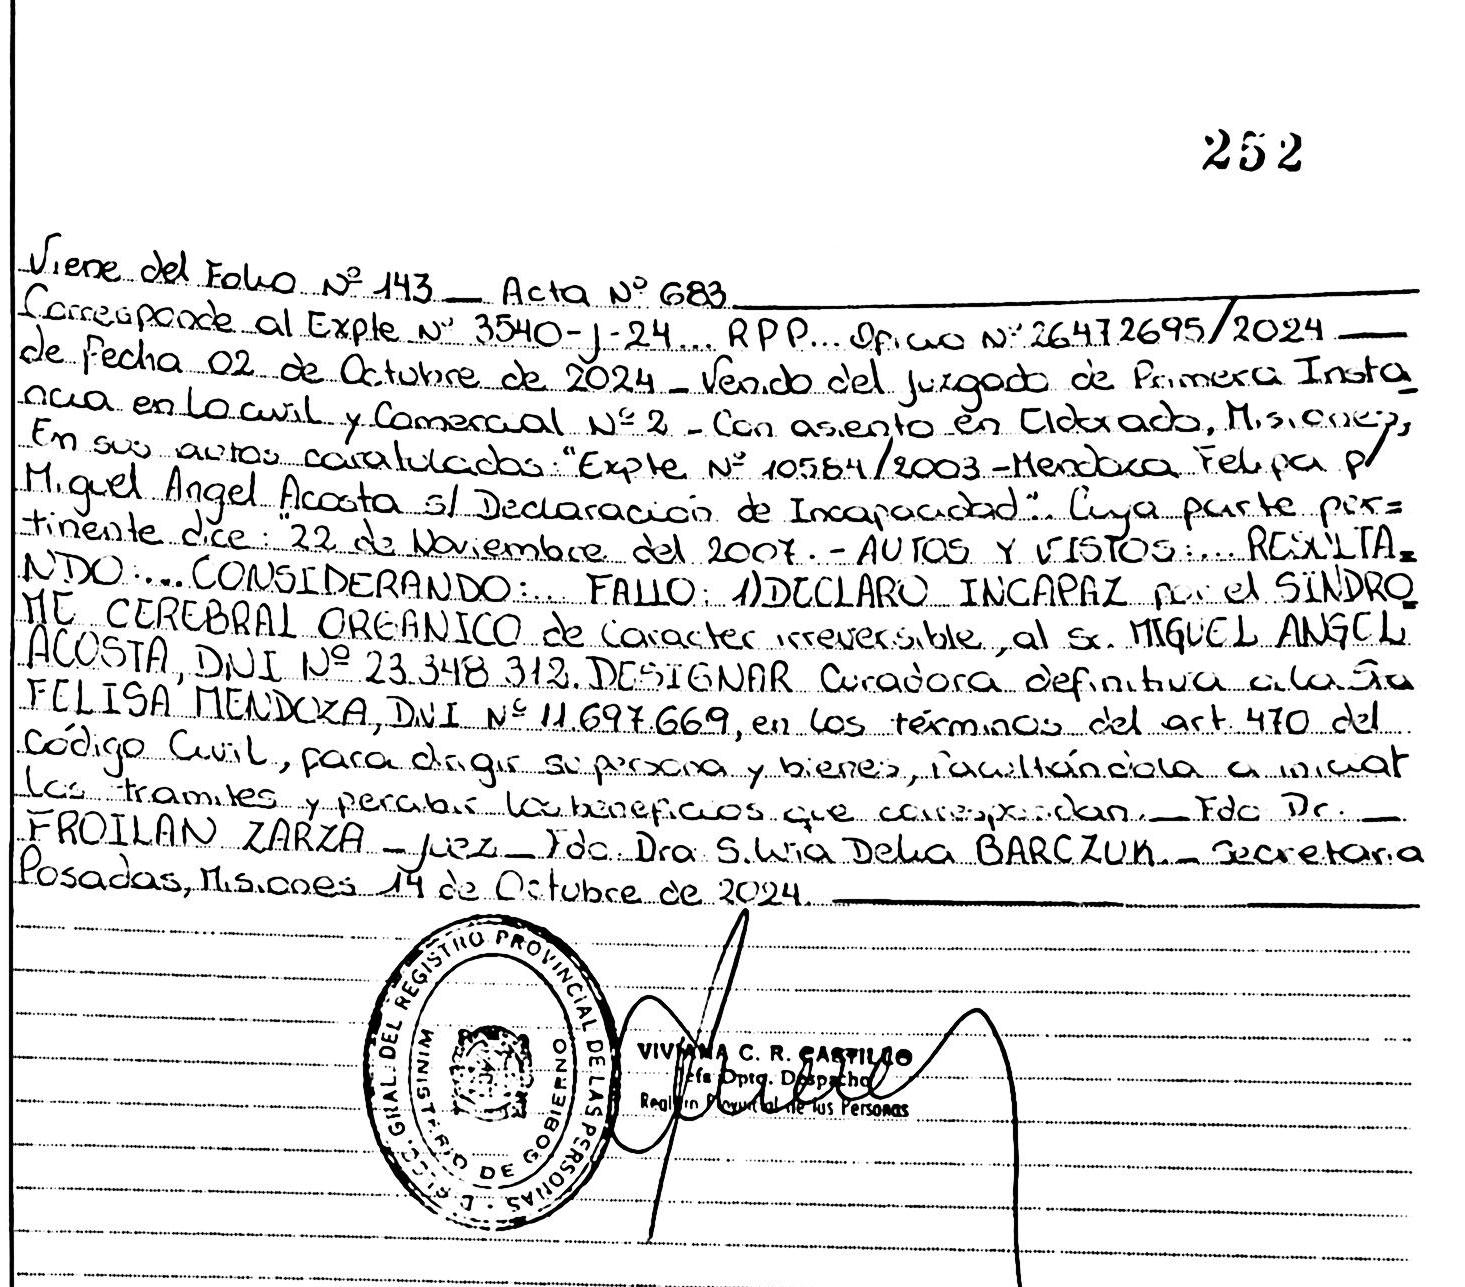 252
Viene del Folio Nº 143 — Acta Nº 683
Corresponde al Expte Nº 3540-J-24... RPP... Oficio Nº 26472695/2024 —
de Fecha 02 de Octubre de 2024 - Venido del Juzgado de Primera Insta_
ncia en Lo civil y Comercial Nº 2 - Con asiento en Eldorado, Misiones,
En sus autos caratulados: "Expte Nº 10584/2003 - Mendoza Felipa p/
Miguel Angel Acosta s/ Declaración de Incapacidad". Cuya parte per=
tinente dice: "22 de Noviembre del 2007. - AUTOS Y VISTOS:... RESULTA=
NDO:... CONSIDERANDO:... FALLO: 1) DECLARO INCAPAZ por el SÍNDRO_
ME CEREBRAL ORGÁNICO de caracter irreversible, al Sr. MIGUEL ANGEL
ACOSTA, DNI Nº 23.348.312. DESIGNAR Curadora definitiva a la Sra
FELISA MENDOZA, DNI Nº 11.697.669, en los términos del art. 470 del
Código Civil, para dirigir su persona y bienes, facultándola a iniciar
las tramites y percibir los beneficios que correspondan. — Fdo Dr. —
FROILAN ZARZA - Juez - Fdo. Dra Silvia Delia BARCZUK. - Secretaria
Posadas, Misiones 14 de Octubre de 2024.
GRAL. DEL REGISTRO PROVINCIAL DE LAS PERSONAS
MINISTERIO DE GOBIERNO
VIVIANA C. R. CASTILLO
Jefa Dpto. Despacho
Registro Provincial de las Personas